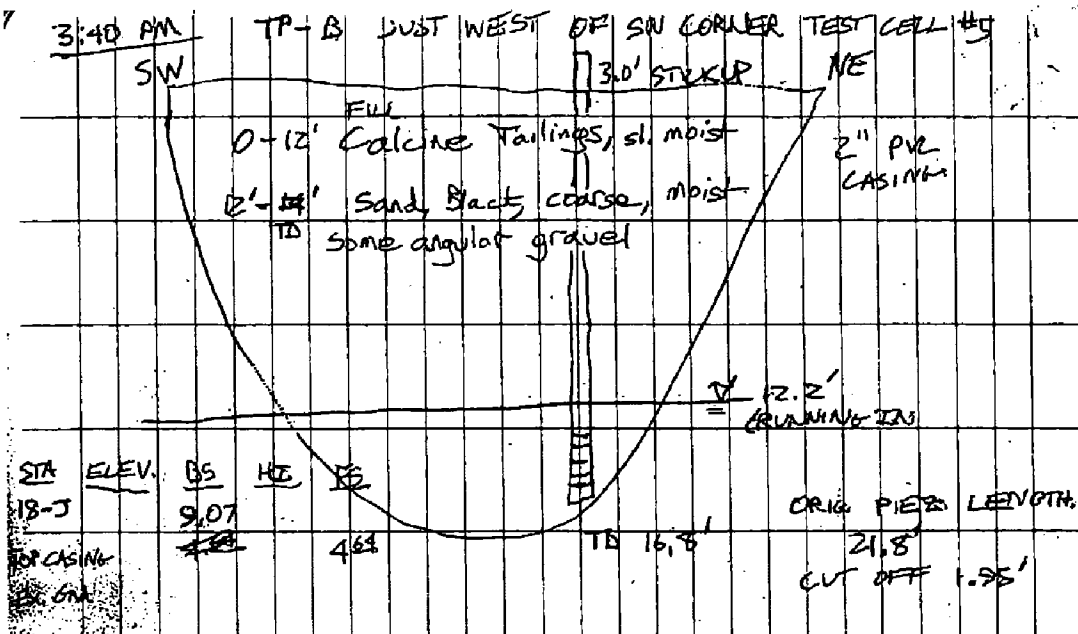 3:40 PM TP-B JUST WEST OF SW CORNER TEST CELL #5
SW 3.0' STICKUP NE
FILL
0-12' Calcine Tailings, sl. moist
2" PVC
CASING
12'- Sand, Black, coarse, moist
TD some angular gravel
12.2'
(RUNNING IN)
STA ELEV. BS HI FS
18-J 9.07
ORIG. PIEZ. LENGTH.
TOP CASING 4.64 4.64 TD 16.8' 21.8'
CUT OFF 1.95'